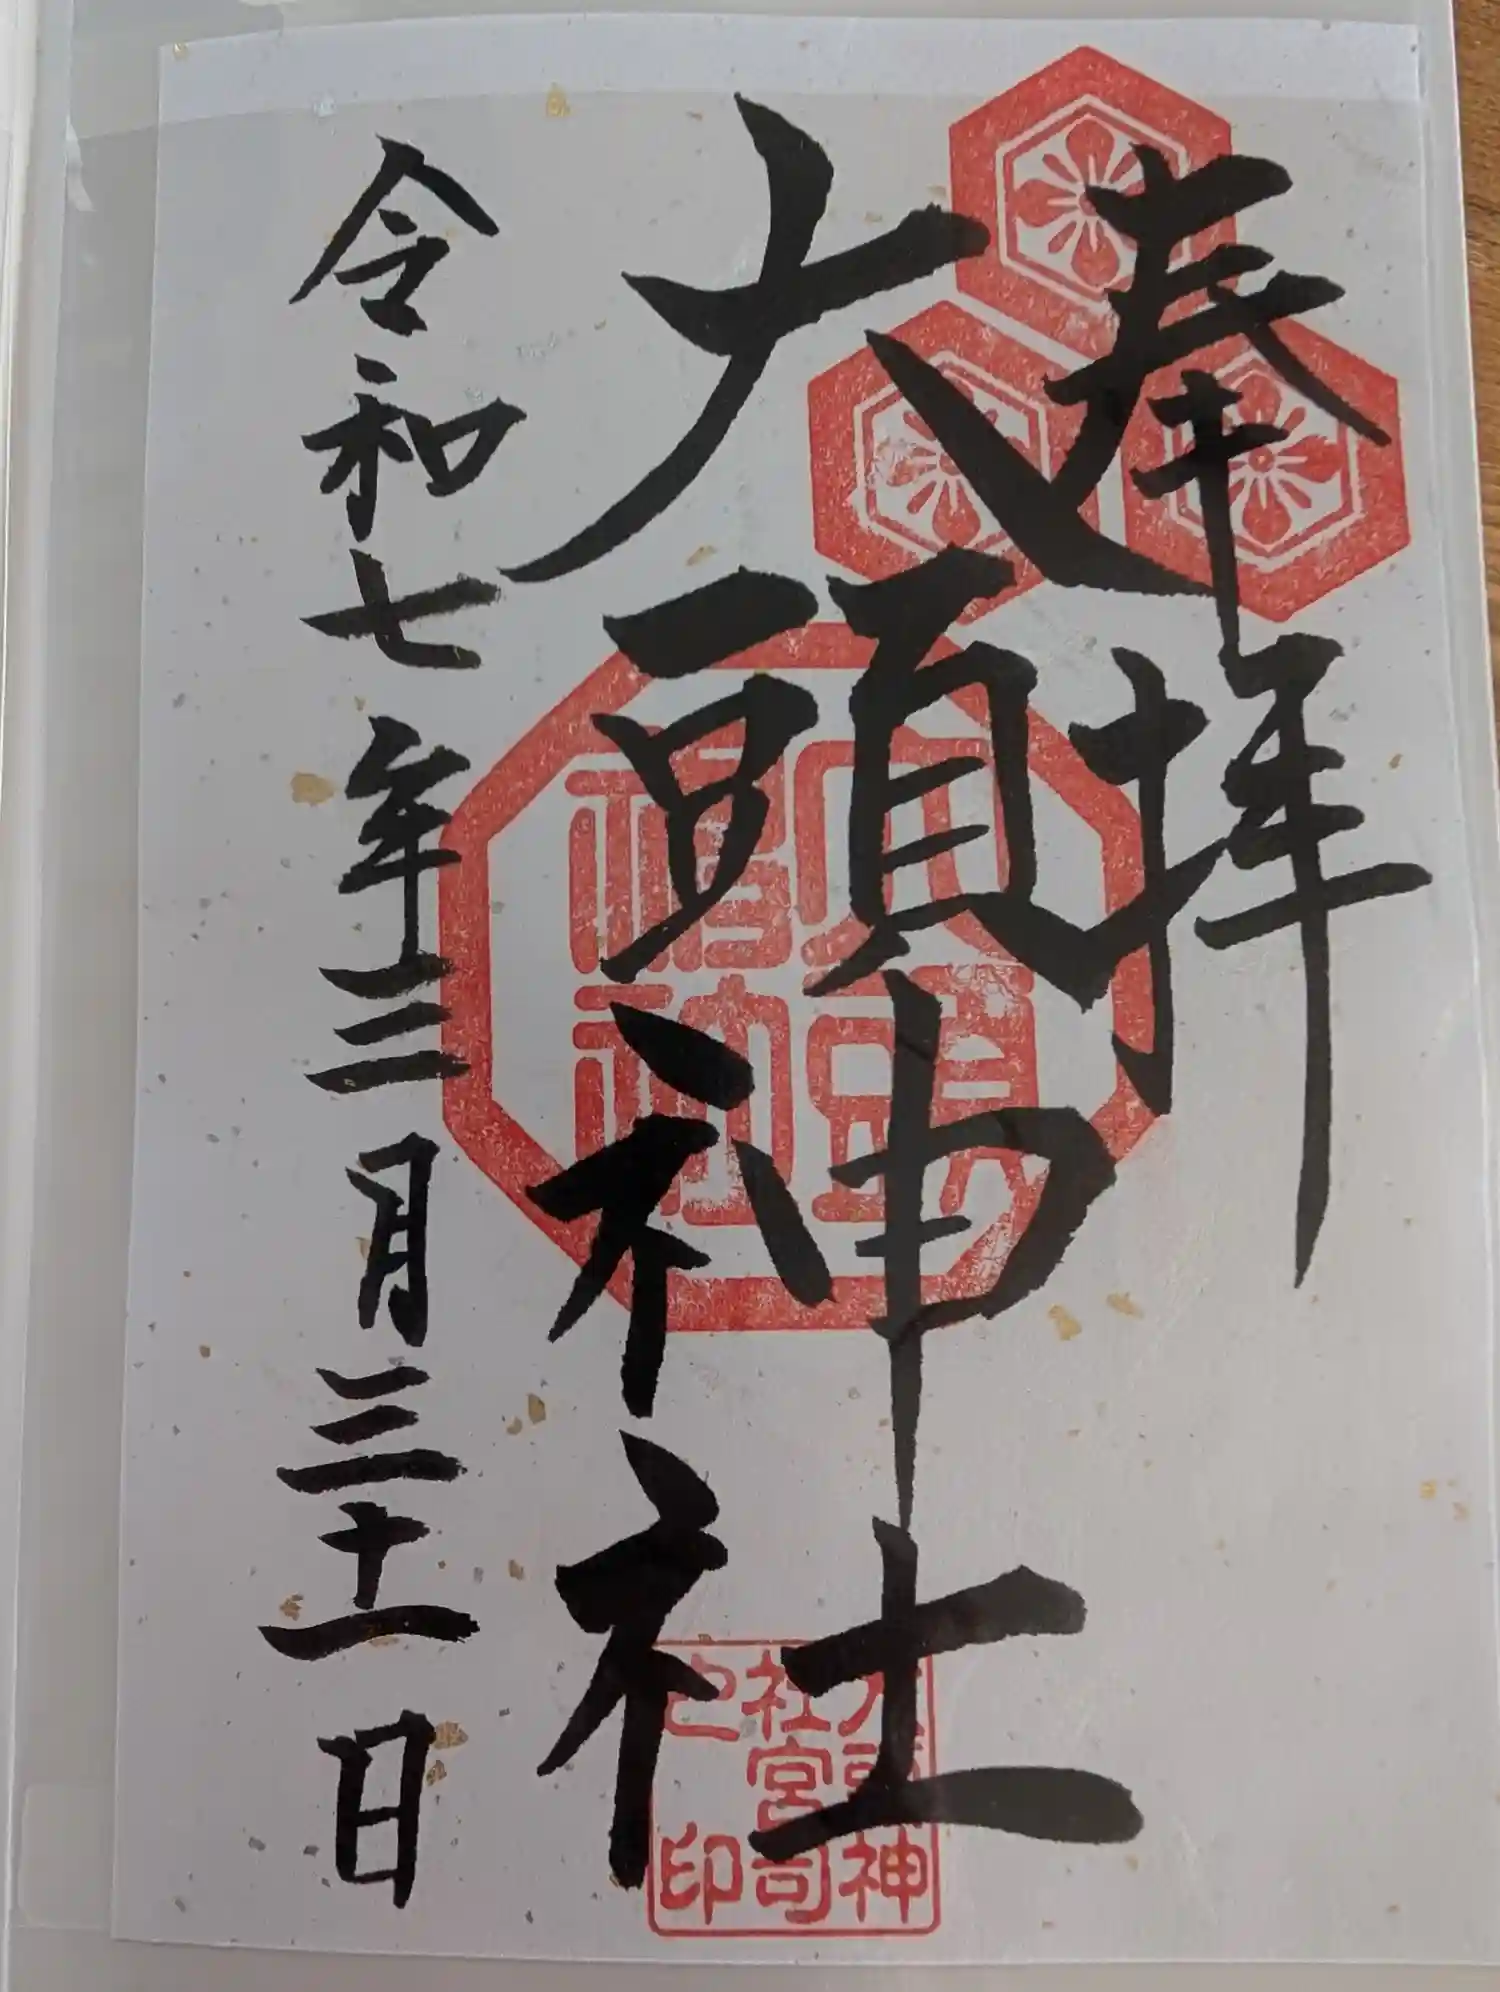 奉拝
大頭神社
令和七年三月三十一日
大頭神
社宮司
之印